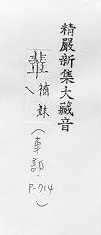 精嚴新集大藏音
輩 補妹
(車部. P-714)